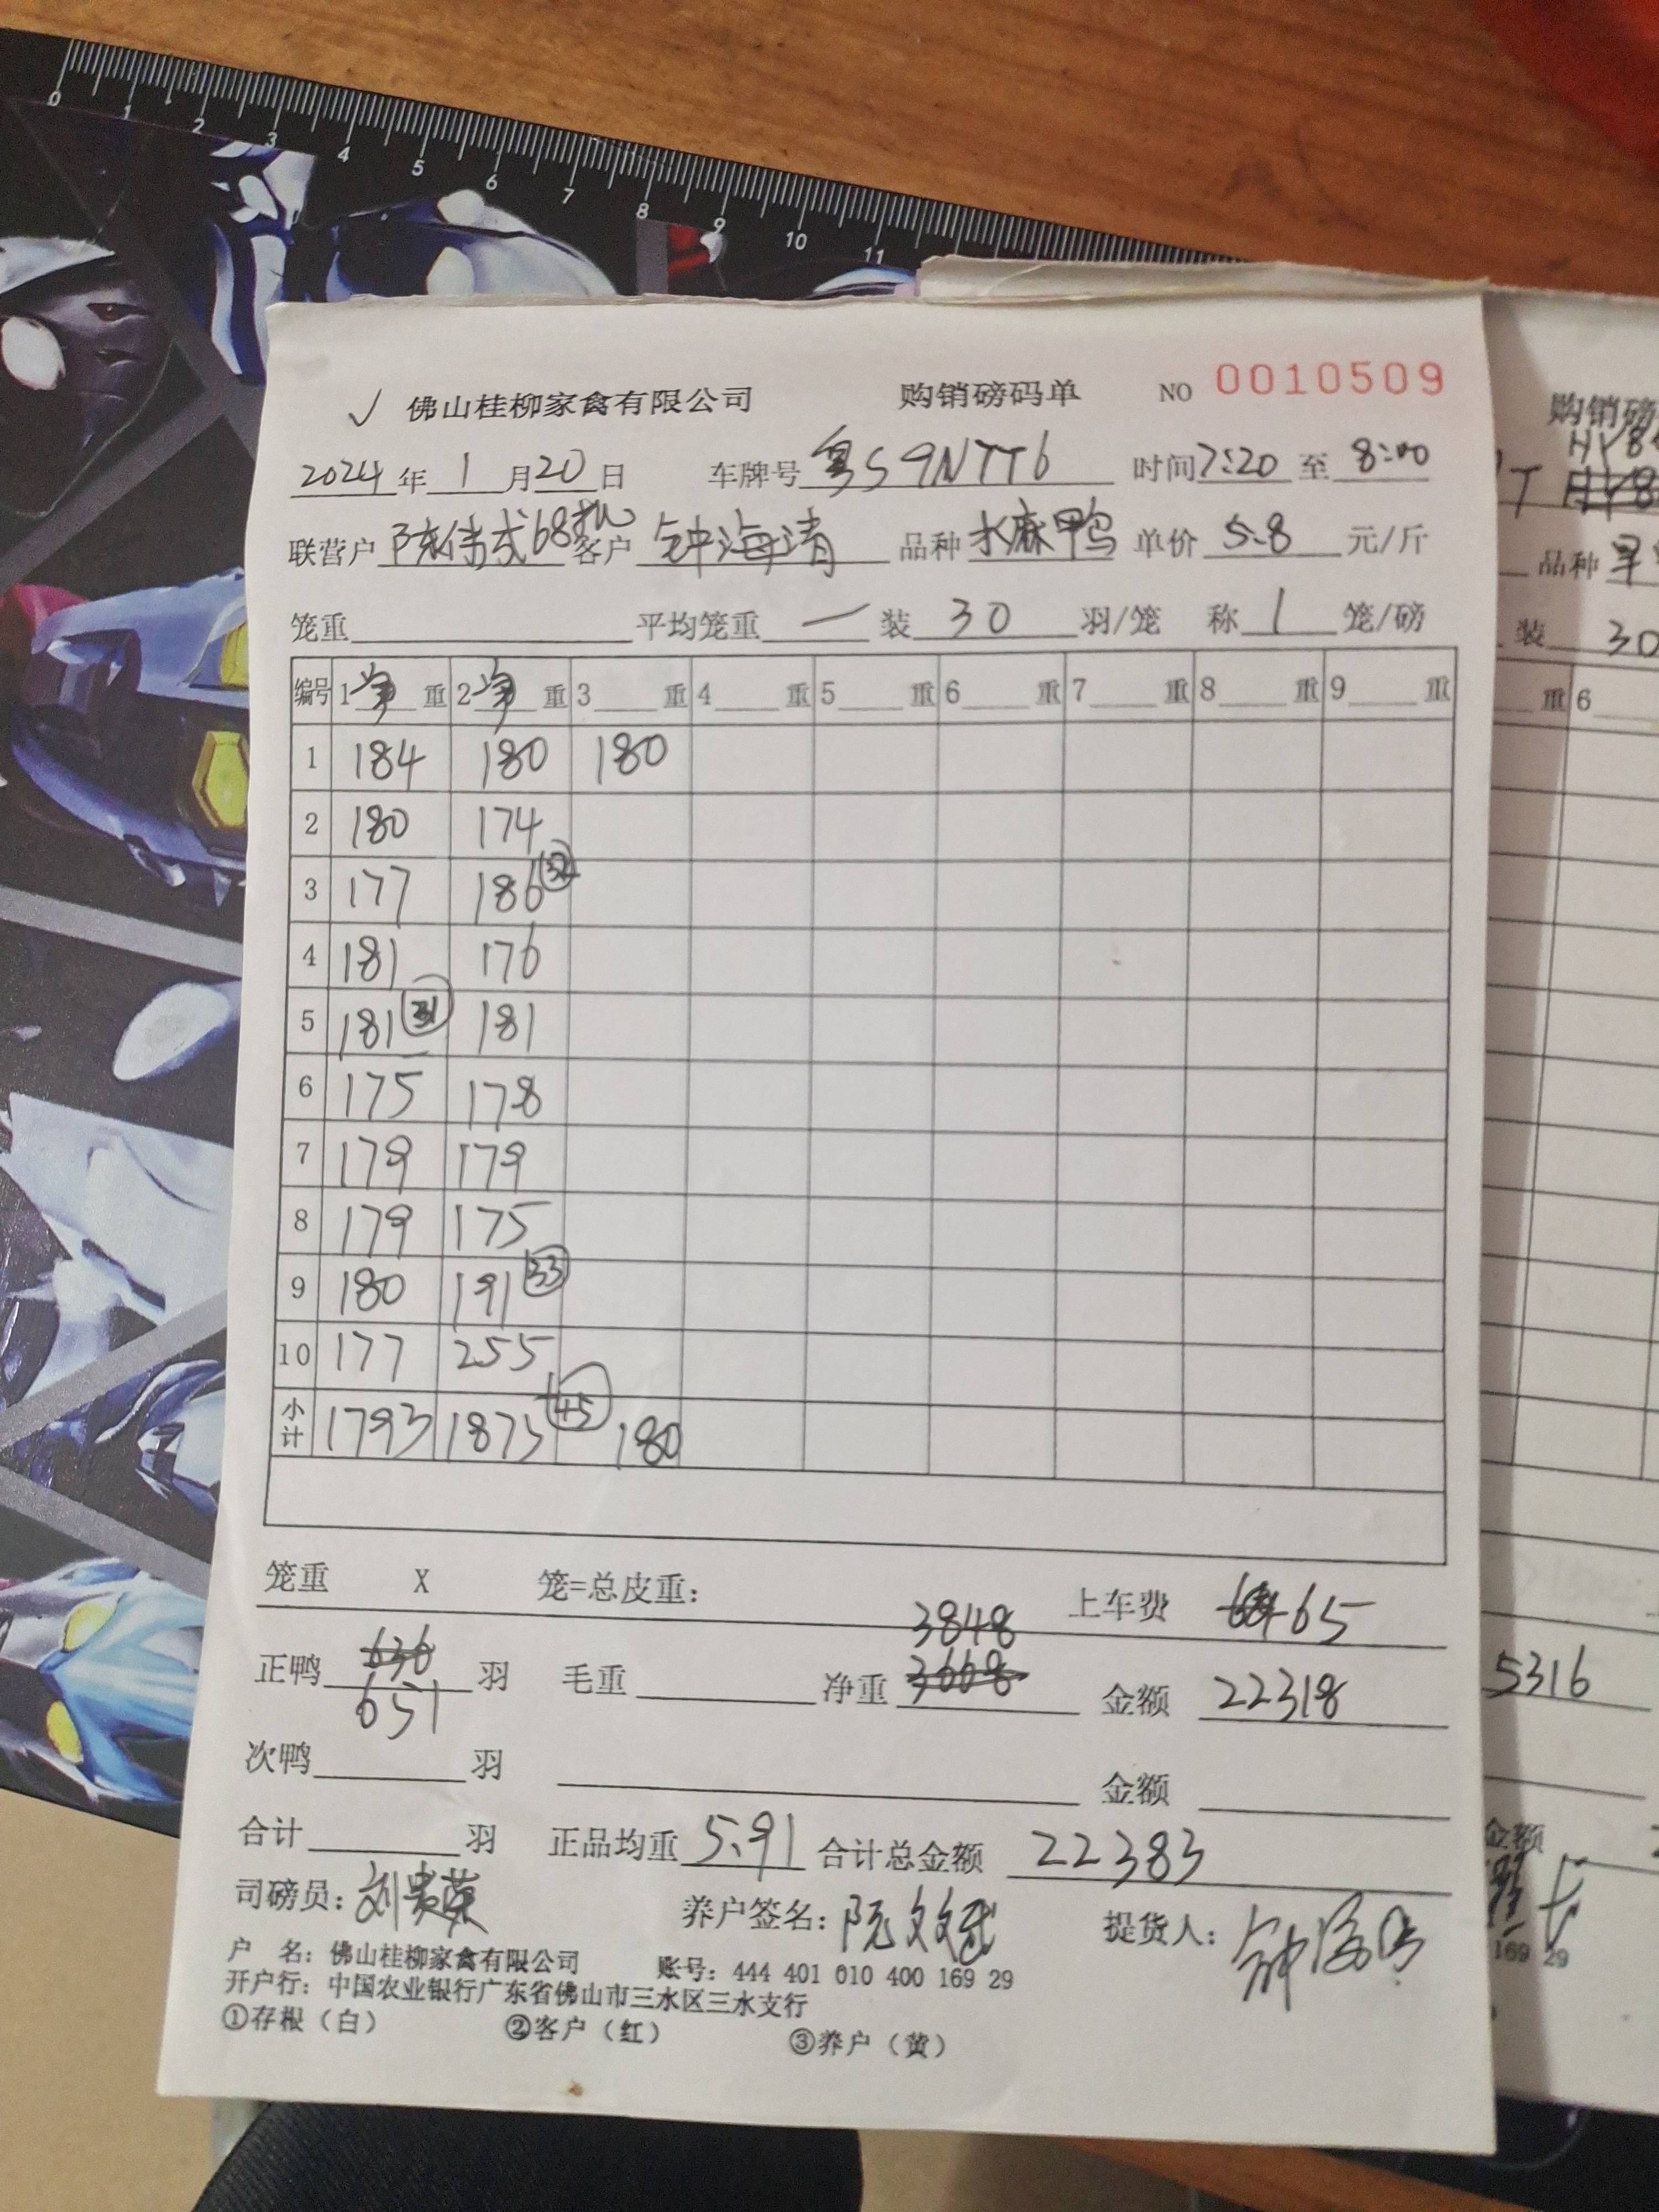 0 1 2 3 4 5 6 7 8 9 10 11
✓ 佛山桂柳家禽有限公司 购销磅码单 NO 0010509
2024年1月20日 车牌号 粤S9NTT6 时间 7:20 至 8:00
联营户 陈伟式68批 客户 钟海清 品种 水麻鸭 单价 5.8 元/斤
笼重 平均笼重 一 装 30 羽/笼 称 1 笼/磅
编号 1 净 重 2 净 重 3 重 4 重 5 重 6 重 7 重 8 重 9 重
1 184 180 180
2 180 174
3 177 186 32
4 181 176
5 181 31 181
6 175 178
7 179 179
8 179 175
9 180 191 33
10 177 255 45
小计 1793 1875 180
笼重 X 笼=总皮重: 上车费 65
3848
正鸭 636 羽 毛重 净重 3668 金额 22318
651
次鸭 羽 金额
合计 羽 正品均重 5.91 合计总金额 22383
司磅员: 刘贵荣 养户签名: 阮 提货人: 钟海
户 名: 佛山桂柳家禽有限公司 账号: 444 401 010 400 169 29
开户行: 中国农业银行广东省佛山市三水区三水支行
①存根（白） ②客户（红） ③养户（黄）
购销磅
品种
装 30
重 6
5316
金额
169 29